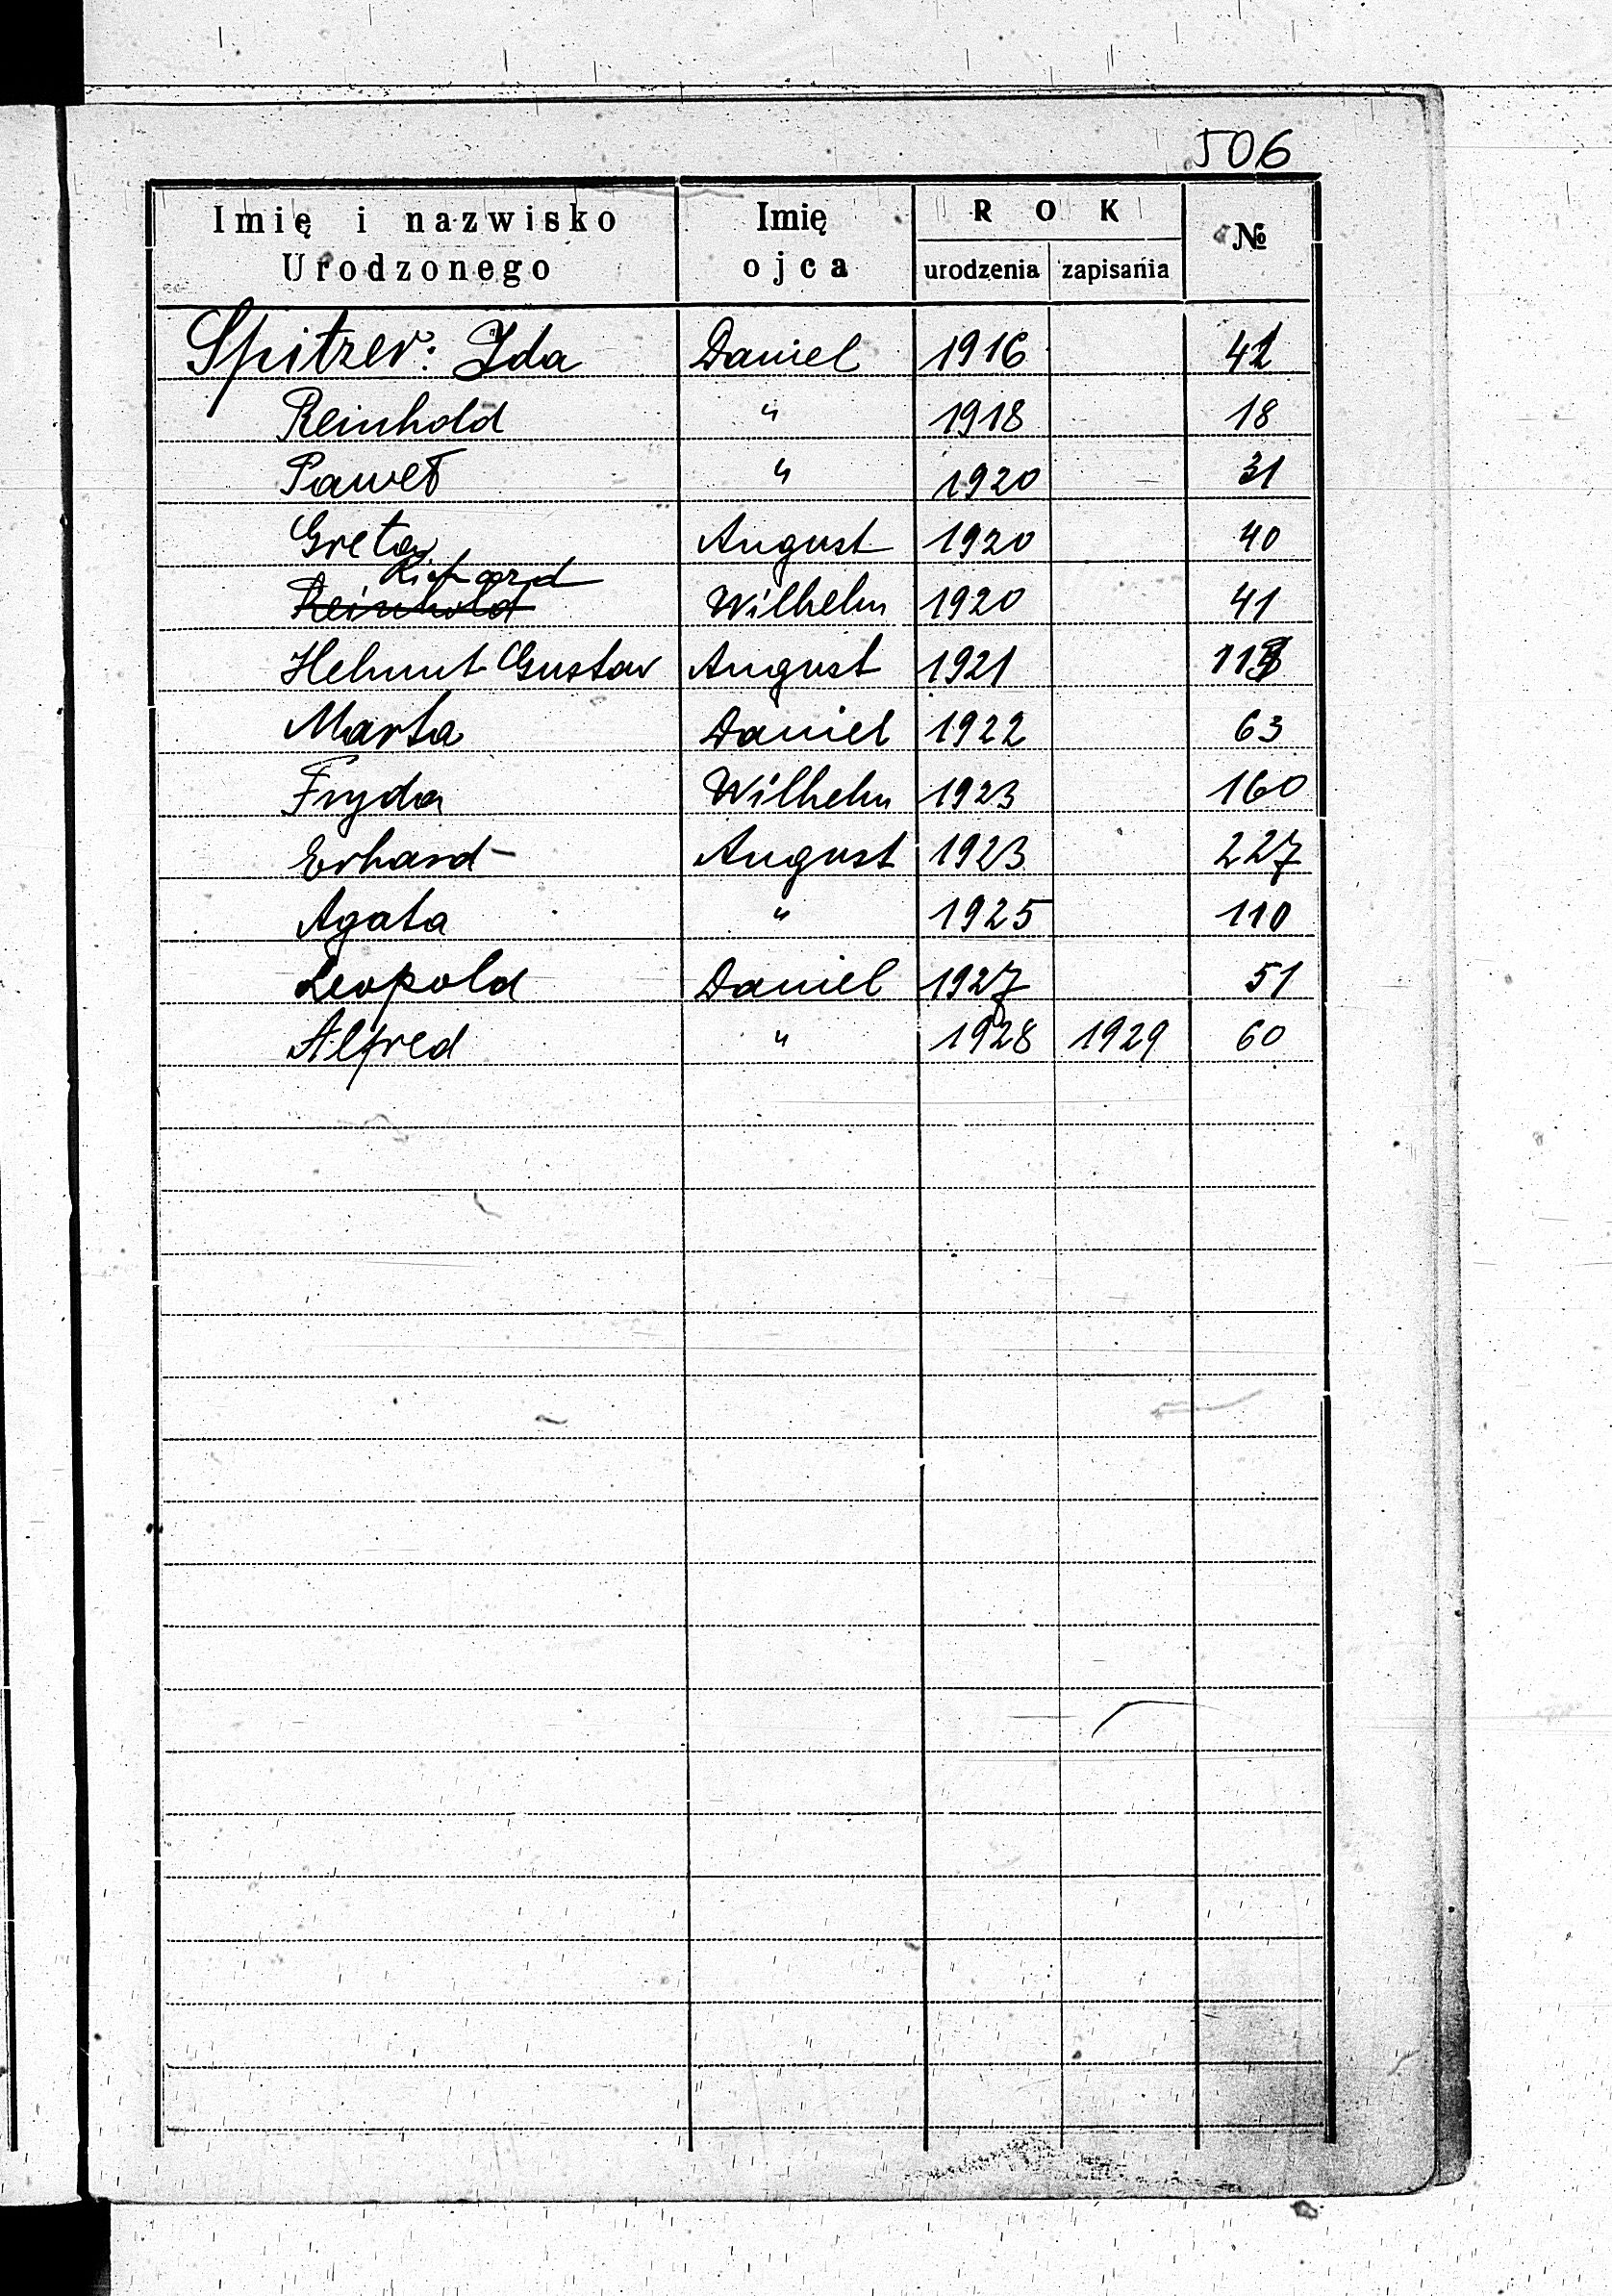 506
Imię i nazwisko Urodzonego Imię ojca ROK urodzenia zapisania №
Spitzer: Ida Daniel 1916 42
Reinhold " 1918 18
Paweł " 1920 31
Greta August 1920 40
Richard
Reinhold Wilhelm 1920 41
Helmut Gustav August 1921
Marta Daniel 1922 63
Fryda Wilhelm 1923 160
Erhard August 1923 227
Agata " 1925 110
Leopold Daniel 1927 51
Alfred " 1928 1929 60